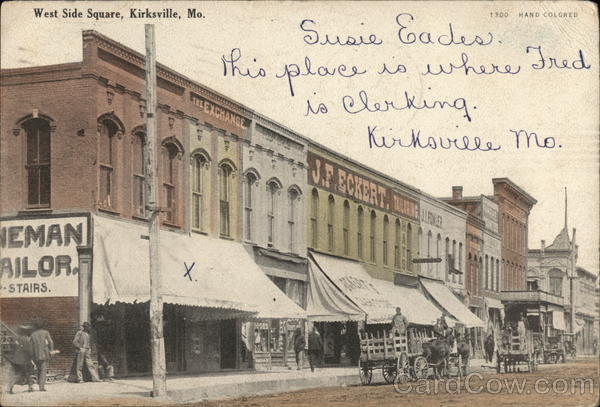 West Side Square, Kirksville, Mo.
1300 HAND COLORED
Susie Eades.
This place is where Fred
is Clerking.
Kirksville Mo.
THE EXCHANGE
J.F. ECKERT.
NEMAN
AILOR.
-STAIRS.
X
CardCow.com